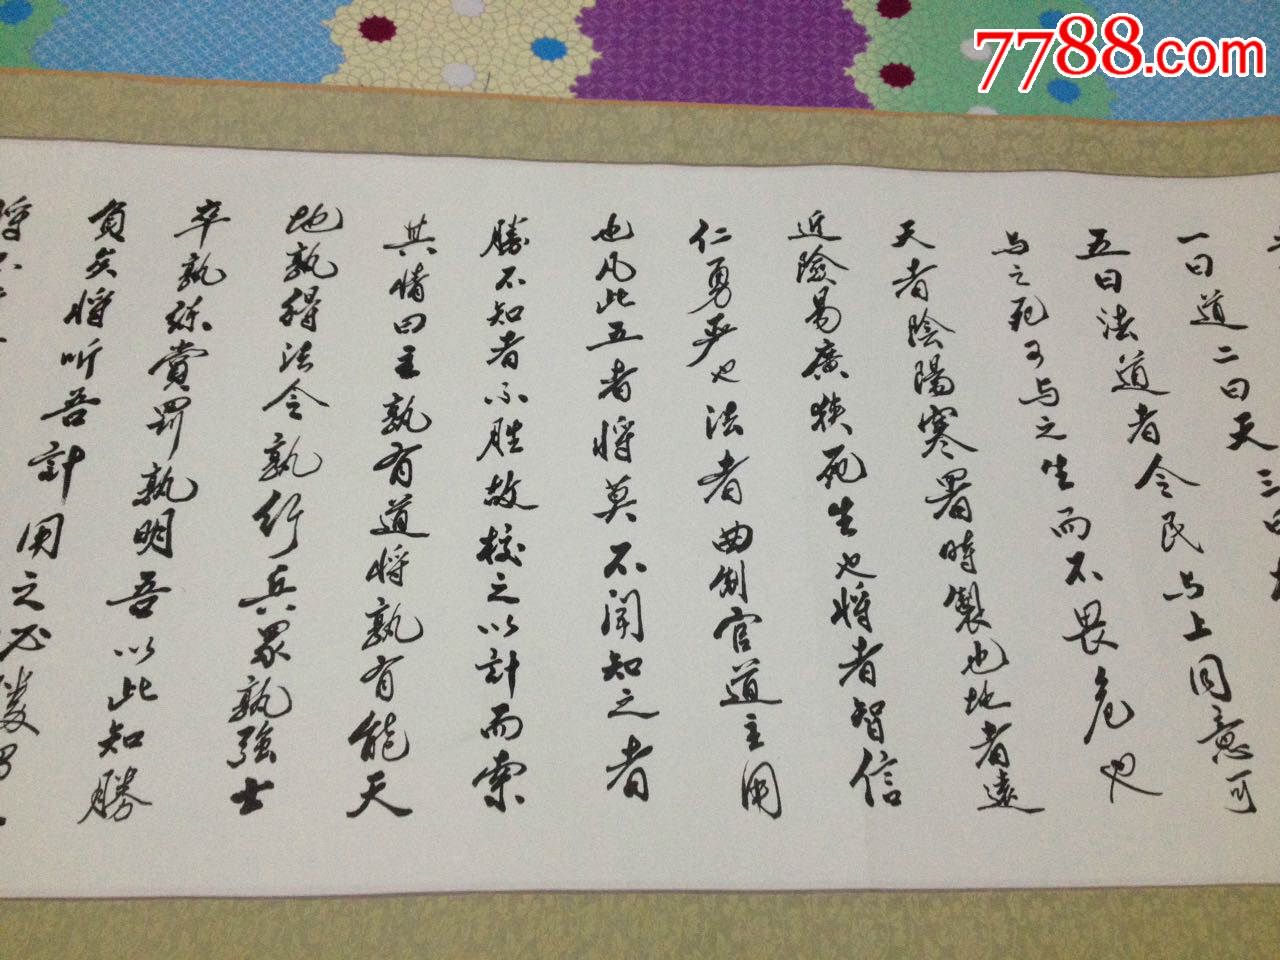 一曰道二曰天三曰
五曰法道者令民与上同意可
与之死可与之生而不畏危也
天者陰陽寒署時製也地者遠
近險易廣狭死生也将者智信
仁勇严也法者曲制官道主用
也凡此五者将莫不闻知之者
勝不知者不胜故校之以計而索
其情曰主孰有道将孰有能天
地孰得法令孰行兵眾孰強士
卒孰练賞罰孰明吾以此知勝
負矣将听吾計用之必
将不
7788.com